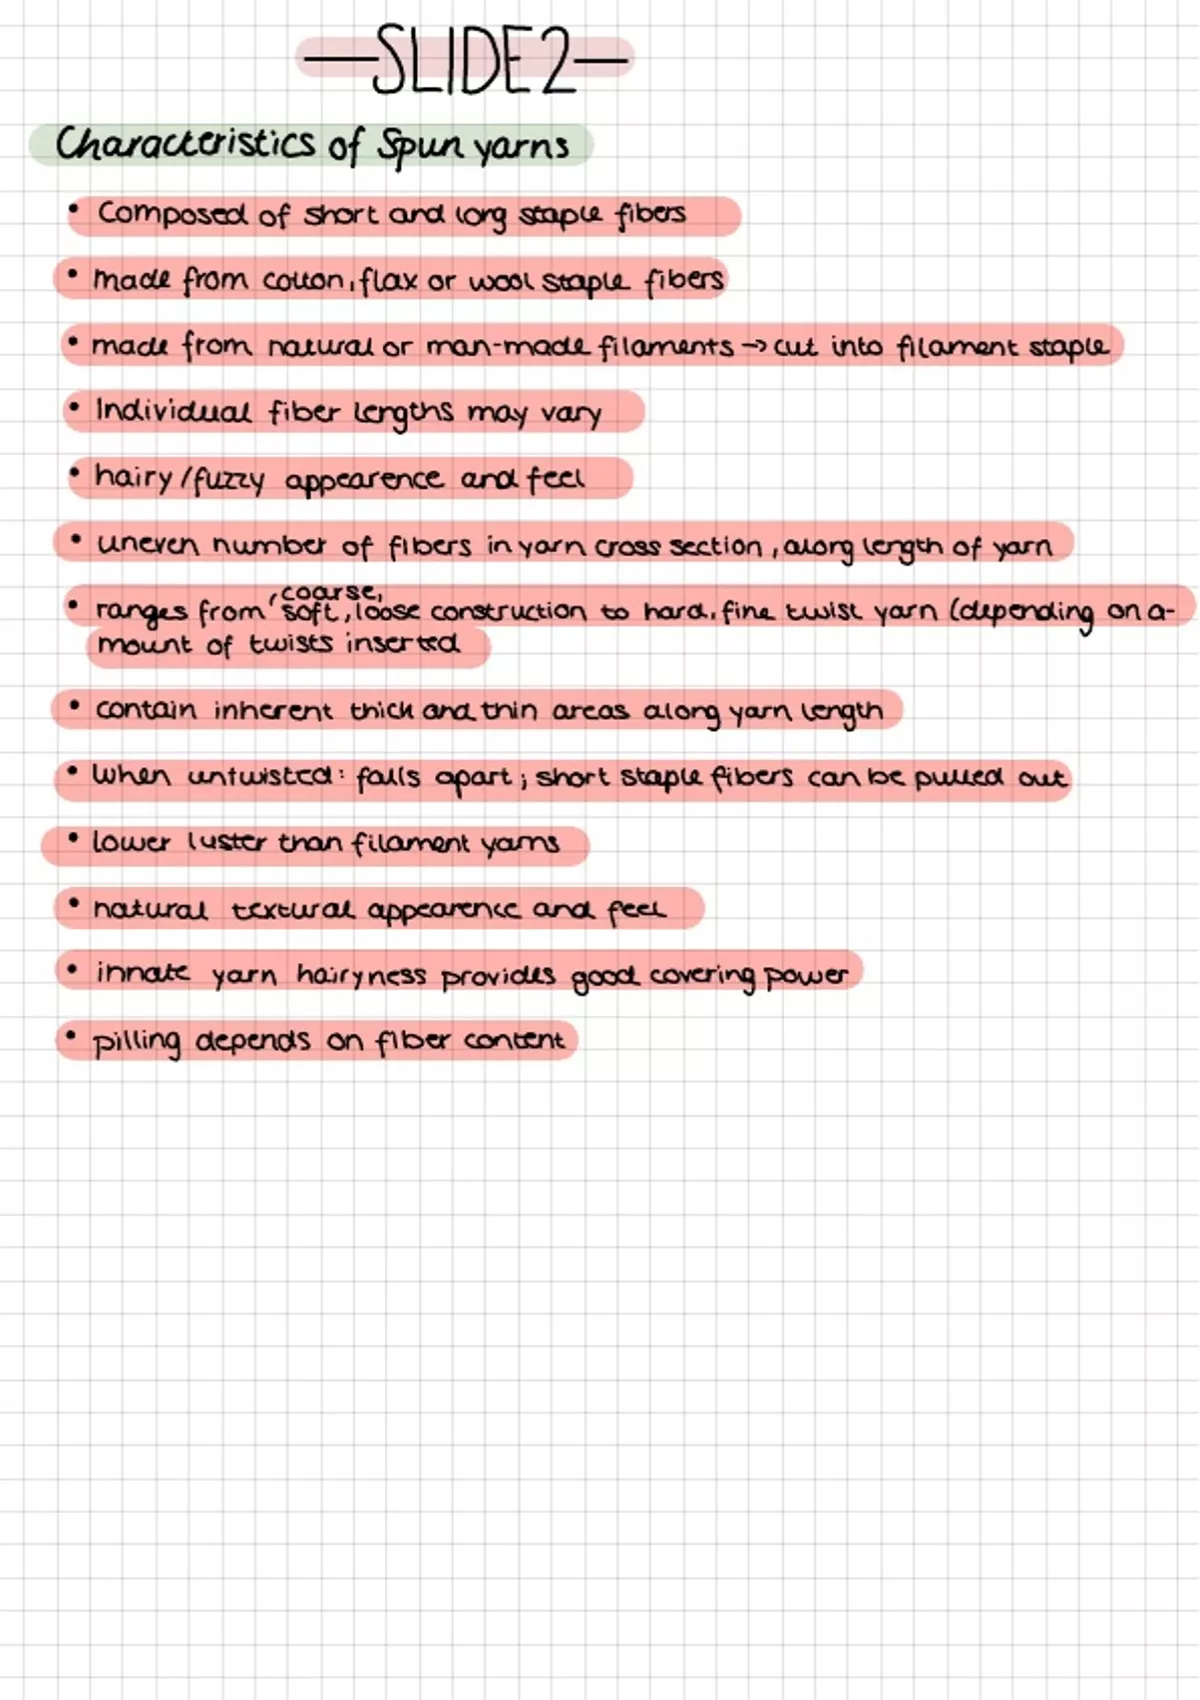 —SLIDE2—
Characteristics of Spun yarns
• Composed of short and long staple fibers
• made from cotton, flax or wool staple fibers
• made from natural or man-made filaments → cut into filament staple
• Individual fiber lengths may vary
• hairy/fuzzy appearence and feel
• uneven number of fibers in yarn cross section, along length of yarn
, coarse,
• ranges from soft, loose construction to hard, fine twist yarn (depending on a-
mount of twists inserted
• contain inherent thick and thin areas along yarn length
• When untwisted: falls apart; short staple fibers can be pulled out
• lower luster than filament yarns
• natural textural appearence and feel
• innate yarn hairyness provides good covering power
• pilling depends on fiber content